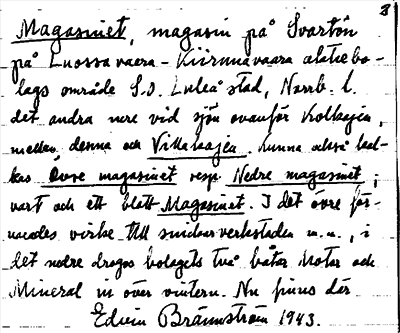 3
Magasinet, magasin på Svartön
på Luossavaara-Kiirunavaara aktiebo-
lags område S.O. Luleå stad, Norrb. l.
det andra nere vid sjön ovanför Kolkajen,
mellan denna och Villakajen. Kunna också kal-
las Övre magasinet resp. Nedre magasinet;
vart och ett blott Magasinet. I det övre för-
varades virke till snickarverkstaden m.m., i
det nedre drogos bolagets två båtar Motor och
Mineral in över vintern. Nu finns där
Edvin Brännström 1943.